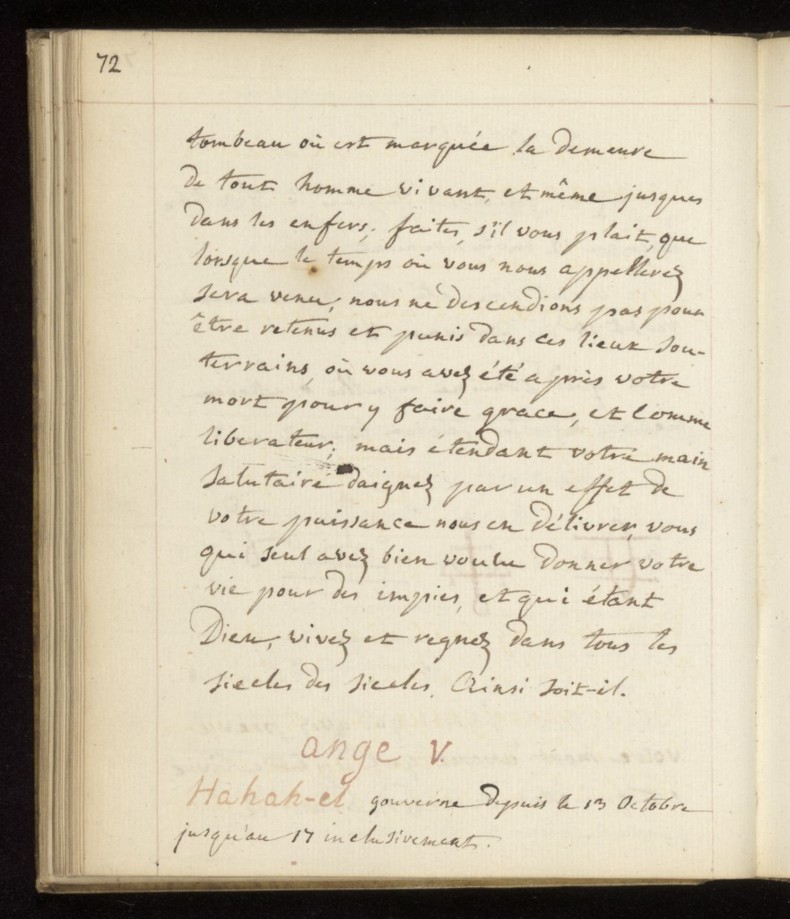 72
tombeau où est marquée la demeure
de tout homme vivant, et même jusques
dans les enfers; faites, s'il vous plait, que
lorsque le temps où vous nous appellerez
sera venu, nous ne descendions pas pour
être retenus et punis dans ces lieux sou-
terrains, où vous avez été après votre
mort pour y faire grace, et comme
liberateur; mais étendant votre main
salutaire daignez par un effet de
votre puissance nous en délivrer, vous
qui seul avez bien voulu donner votre
vie pour des impies, et qui étant
Dieu, vivez et regnez dans tous les
siecles des siecles. Ainsi soit-il.
ange V.
Hahah-el gouverne depuis le 13 Octobre
jusqu'au 17 inclusivement.